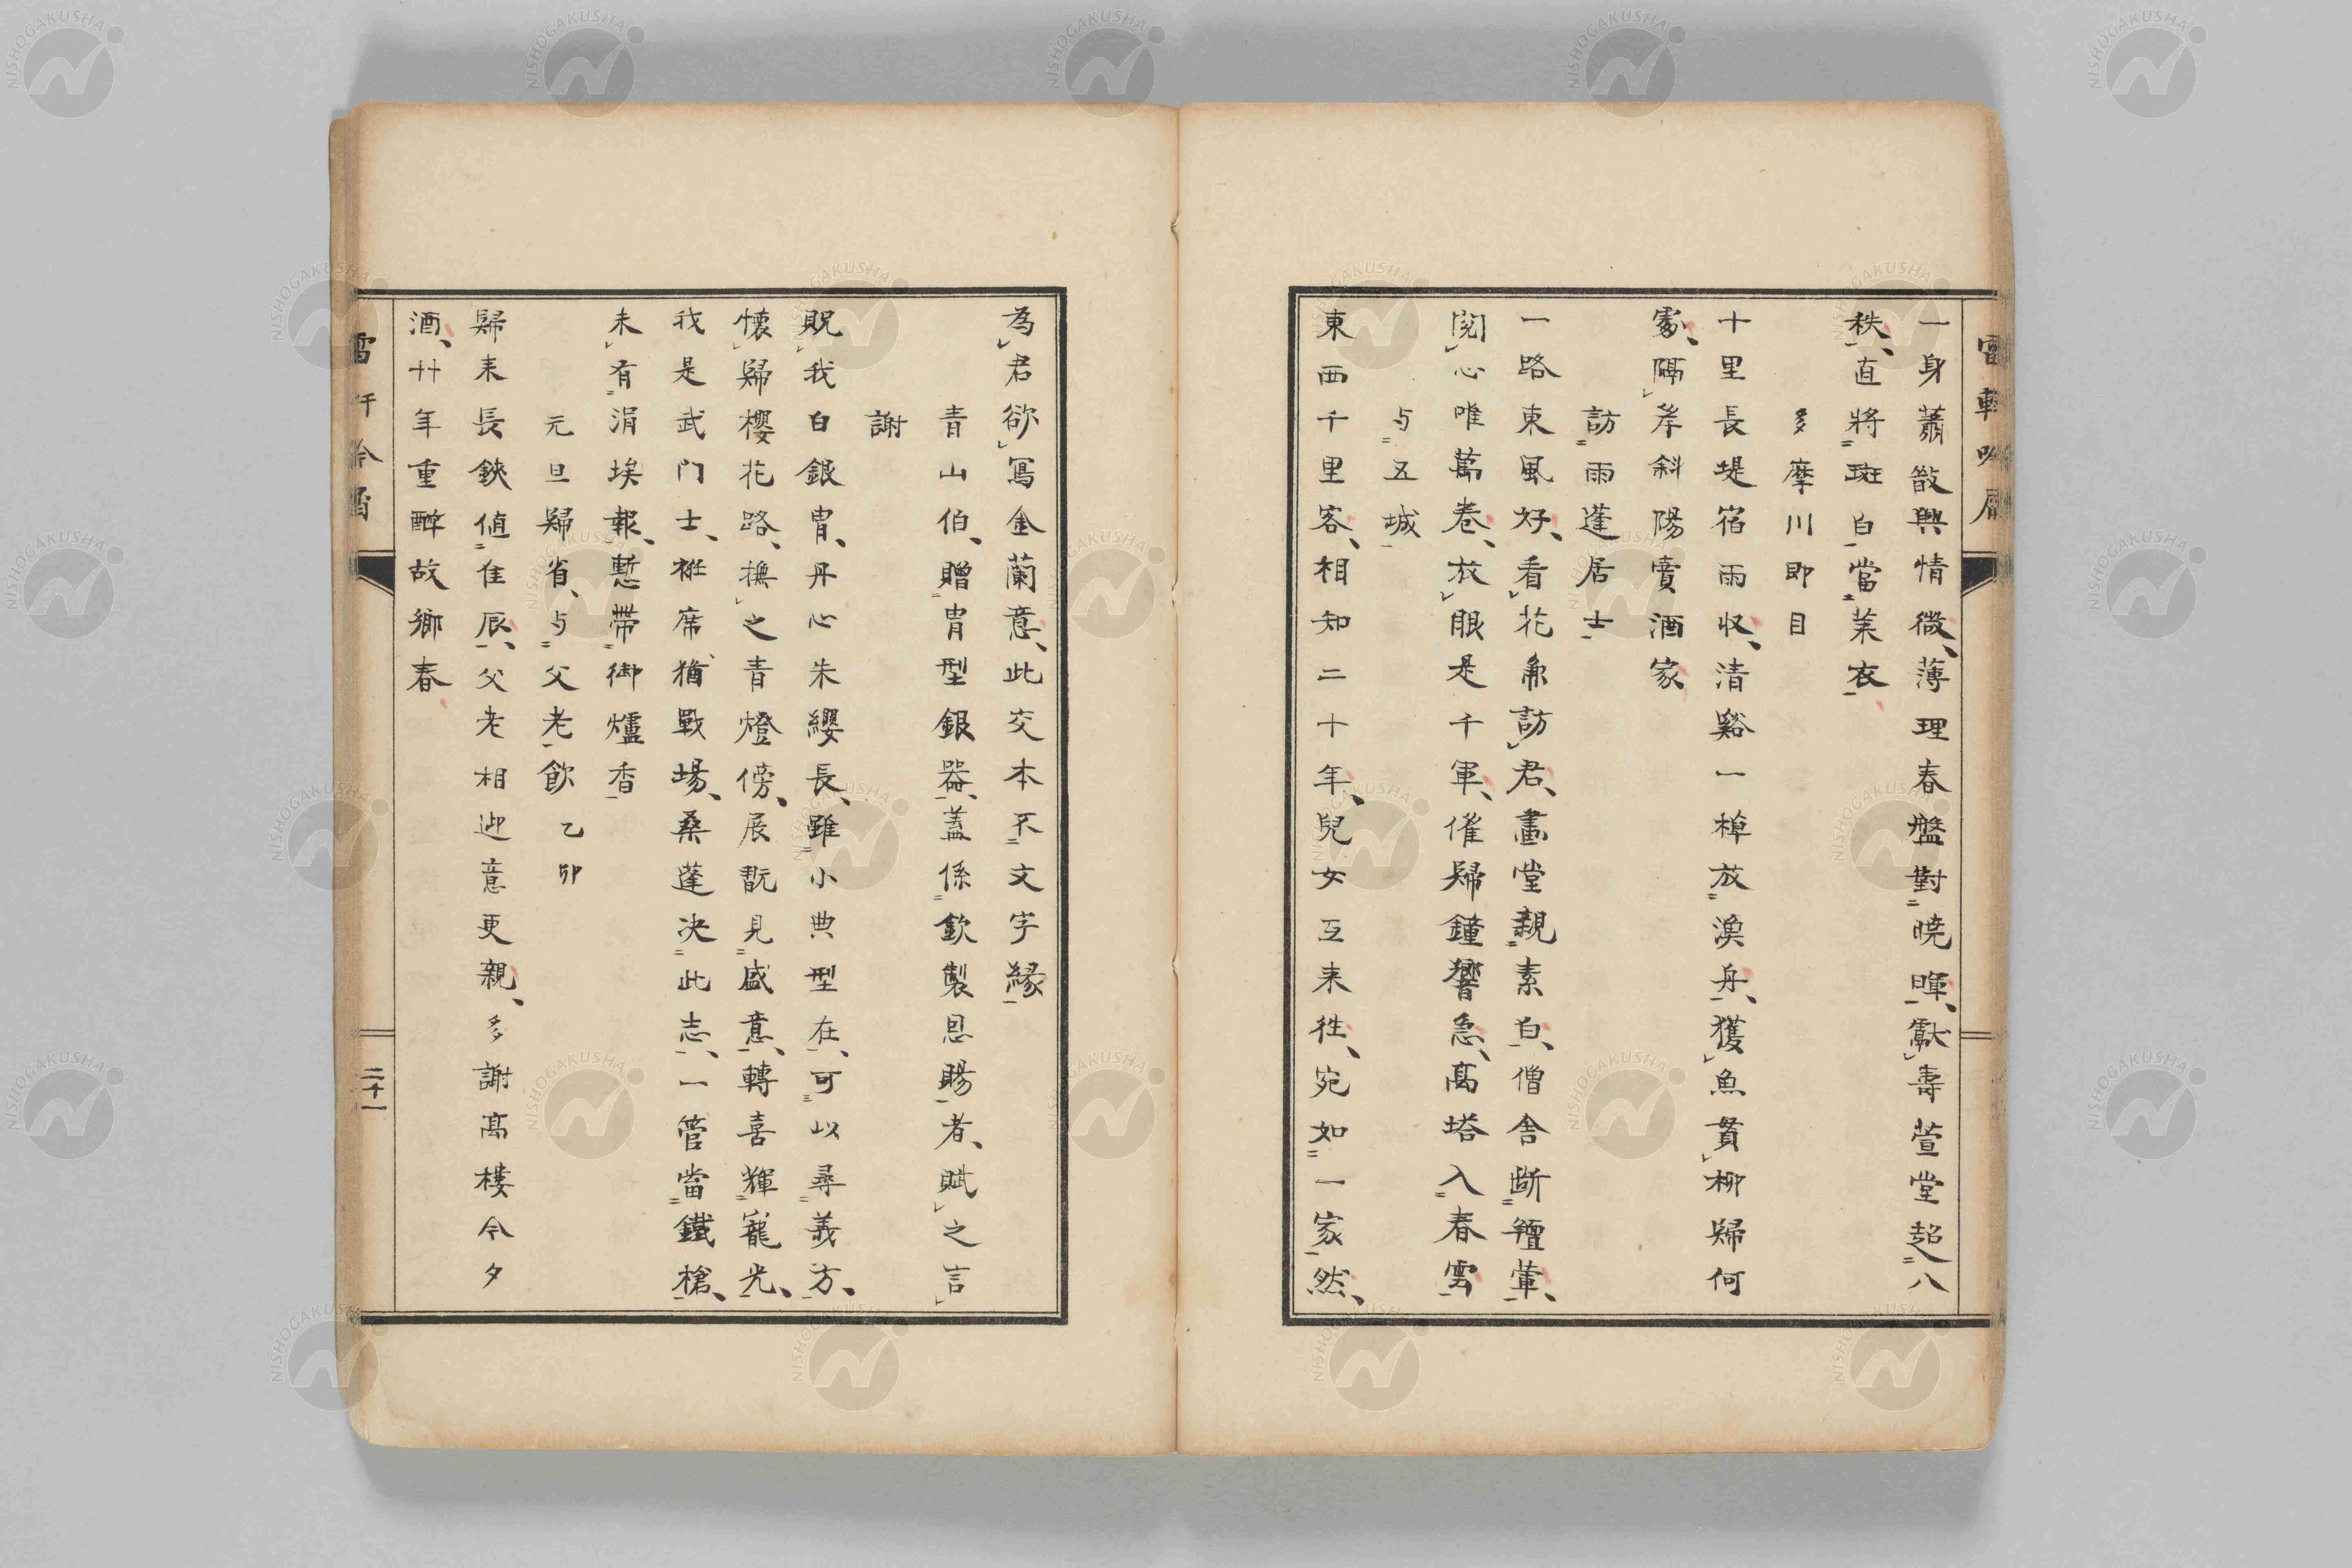 一身蕭散興情微、薄理春盤對曉暉、獻壽萱堂超八
秩、直將斑白當茱衣
多摩川即目
十里長堤宿雨収、清谿一棹放漁舟、獲魚貫柳歸何
處、隔岸斜陽賣酒家
訪雨蓬居士
一路東風好、看花兼訪君、畫堂親素白、僧舍斷羶葷、
閲心唯萬卷、放眼是千軍、催歸鐘響急、高塔入春雲
与五城
東西千里客、相知二十年、兒女互来徃、宛如一家然、
為君欲寫金蘭意、此交本不文字縁
青山伯、贈冑型銀器、蓋係欽製恩賜者、賦之言
謝
貺我白銀冑、丹心朱纓長、雖小典型在、可以尋義方、
懐歸櫻花路、撫之青燈傍、展翫見盛意、轉喜輝寵光、
我是武门士、袵席猶戰場、桑蓬决此志、一管當鐵槍、
未有涓埃報、慙帶御爐香
元旦歸省、与父老飲 乙卯
歸来長鋏値佳辰、父老相迎意更親、多謝高樓今夕
酒、廿年重醉故郷春
二十一
NISHOGAKUSHA